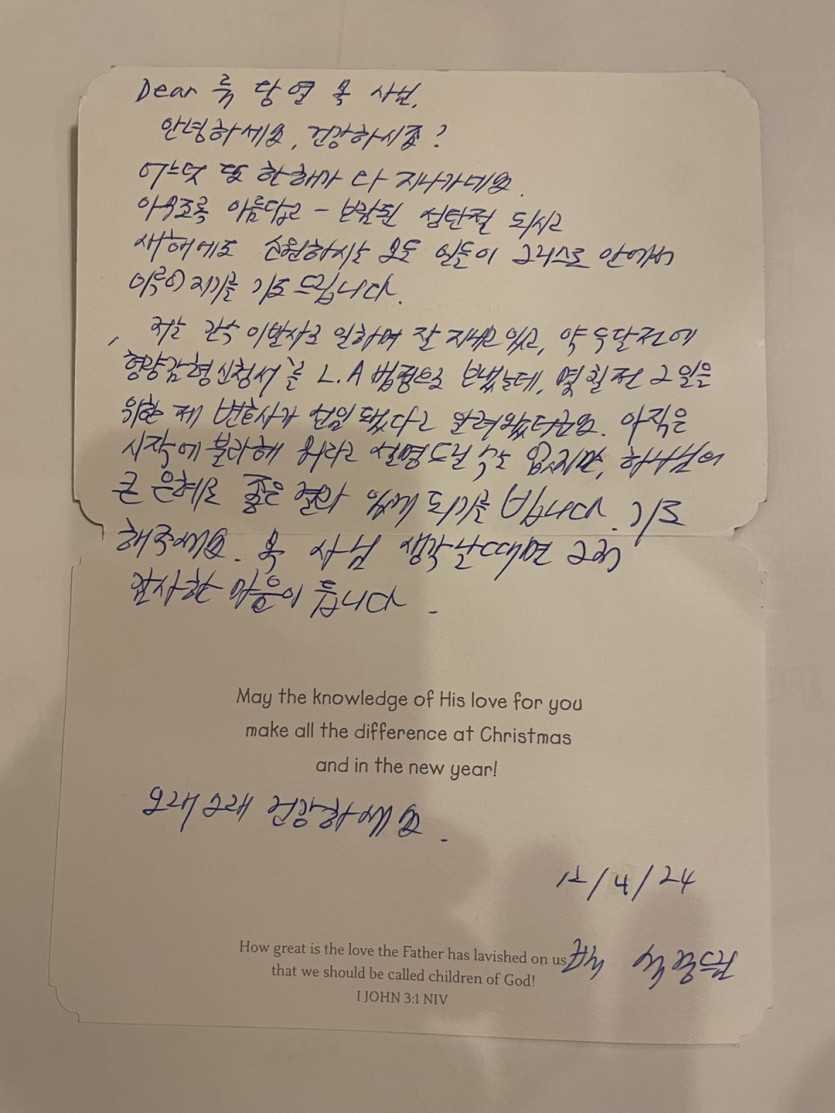 Dear 목사님,
안녕하세요, 건강하시죠?
어느덧 또 한해가 다 지나가네요.
아무조록 아름답고 - 보람된 성탄절 되시고
새해에도 소원하시는 모든 일들이 그리스도 안에서
이루어지기를 기도 드립니다.
저는 이발사로 일하며 잘 지내고 있고, 약 두달전에
형량감형신청서를 L.A 법정으로 보냈는데, 몇일전 그 일을
위한 제 변호사가 선임 됐다고 알려왔더군요. 아직은
시작에 불과해 뭐라고 설명드릴 수는 없지만, 하나님의
큰 은혜로 좋은 결과 있게 되기를 빕니다. 기도
해주세요. 목사님 생각날때면 그저
감사한 마음이 듭니다.
May the knowledge of His love for you
make all the difference at Christmas
and in the new year!
오래오래 건강하세요.
12/4/24
How great is the love the Father has lavished on us,
that we should be called children of God!
I JOHN 3:1 NIV